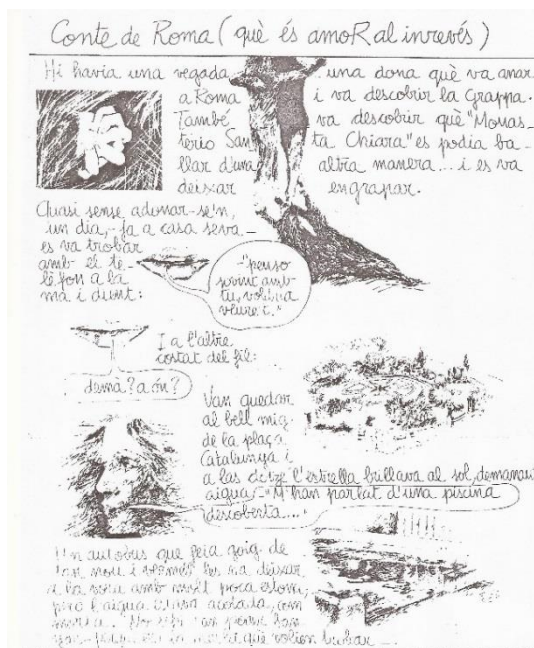 Conte de Roma (què és amoR al inrevés)
Hi havia una vegada una dona què va anar
a Roma i va descobrir la Grappa.
També va descobrir què "Monas-
terio San ta Chiara" es podia ba-
llar d'una altra manera... i es va
deixar engrapar.
Quasi sense adonar-se'n,
un dia, ja a casa seva
es va trobar
amb el te-
lèfon a la
mà i dient:
"penso
sovint amb
tu, voldria
veure't."
I a l'altre
costat del fil:
demà? a ón?
Van quedar
al bell mig
de la plaça
Catalunya i
a las dotze l'estrella brillava al sol, demanant
aigua. "M'han parlat d'una piscina
descoberta..."
Un autobús que feia goig de
tan nou i vermell les va deixar
a la vora amb molt poca estona,
però l'aigua estava acotada, com
morta.
què volien buscar